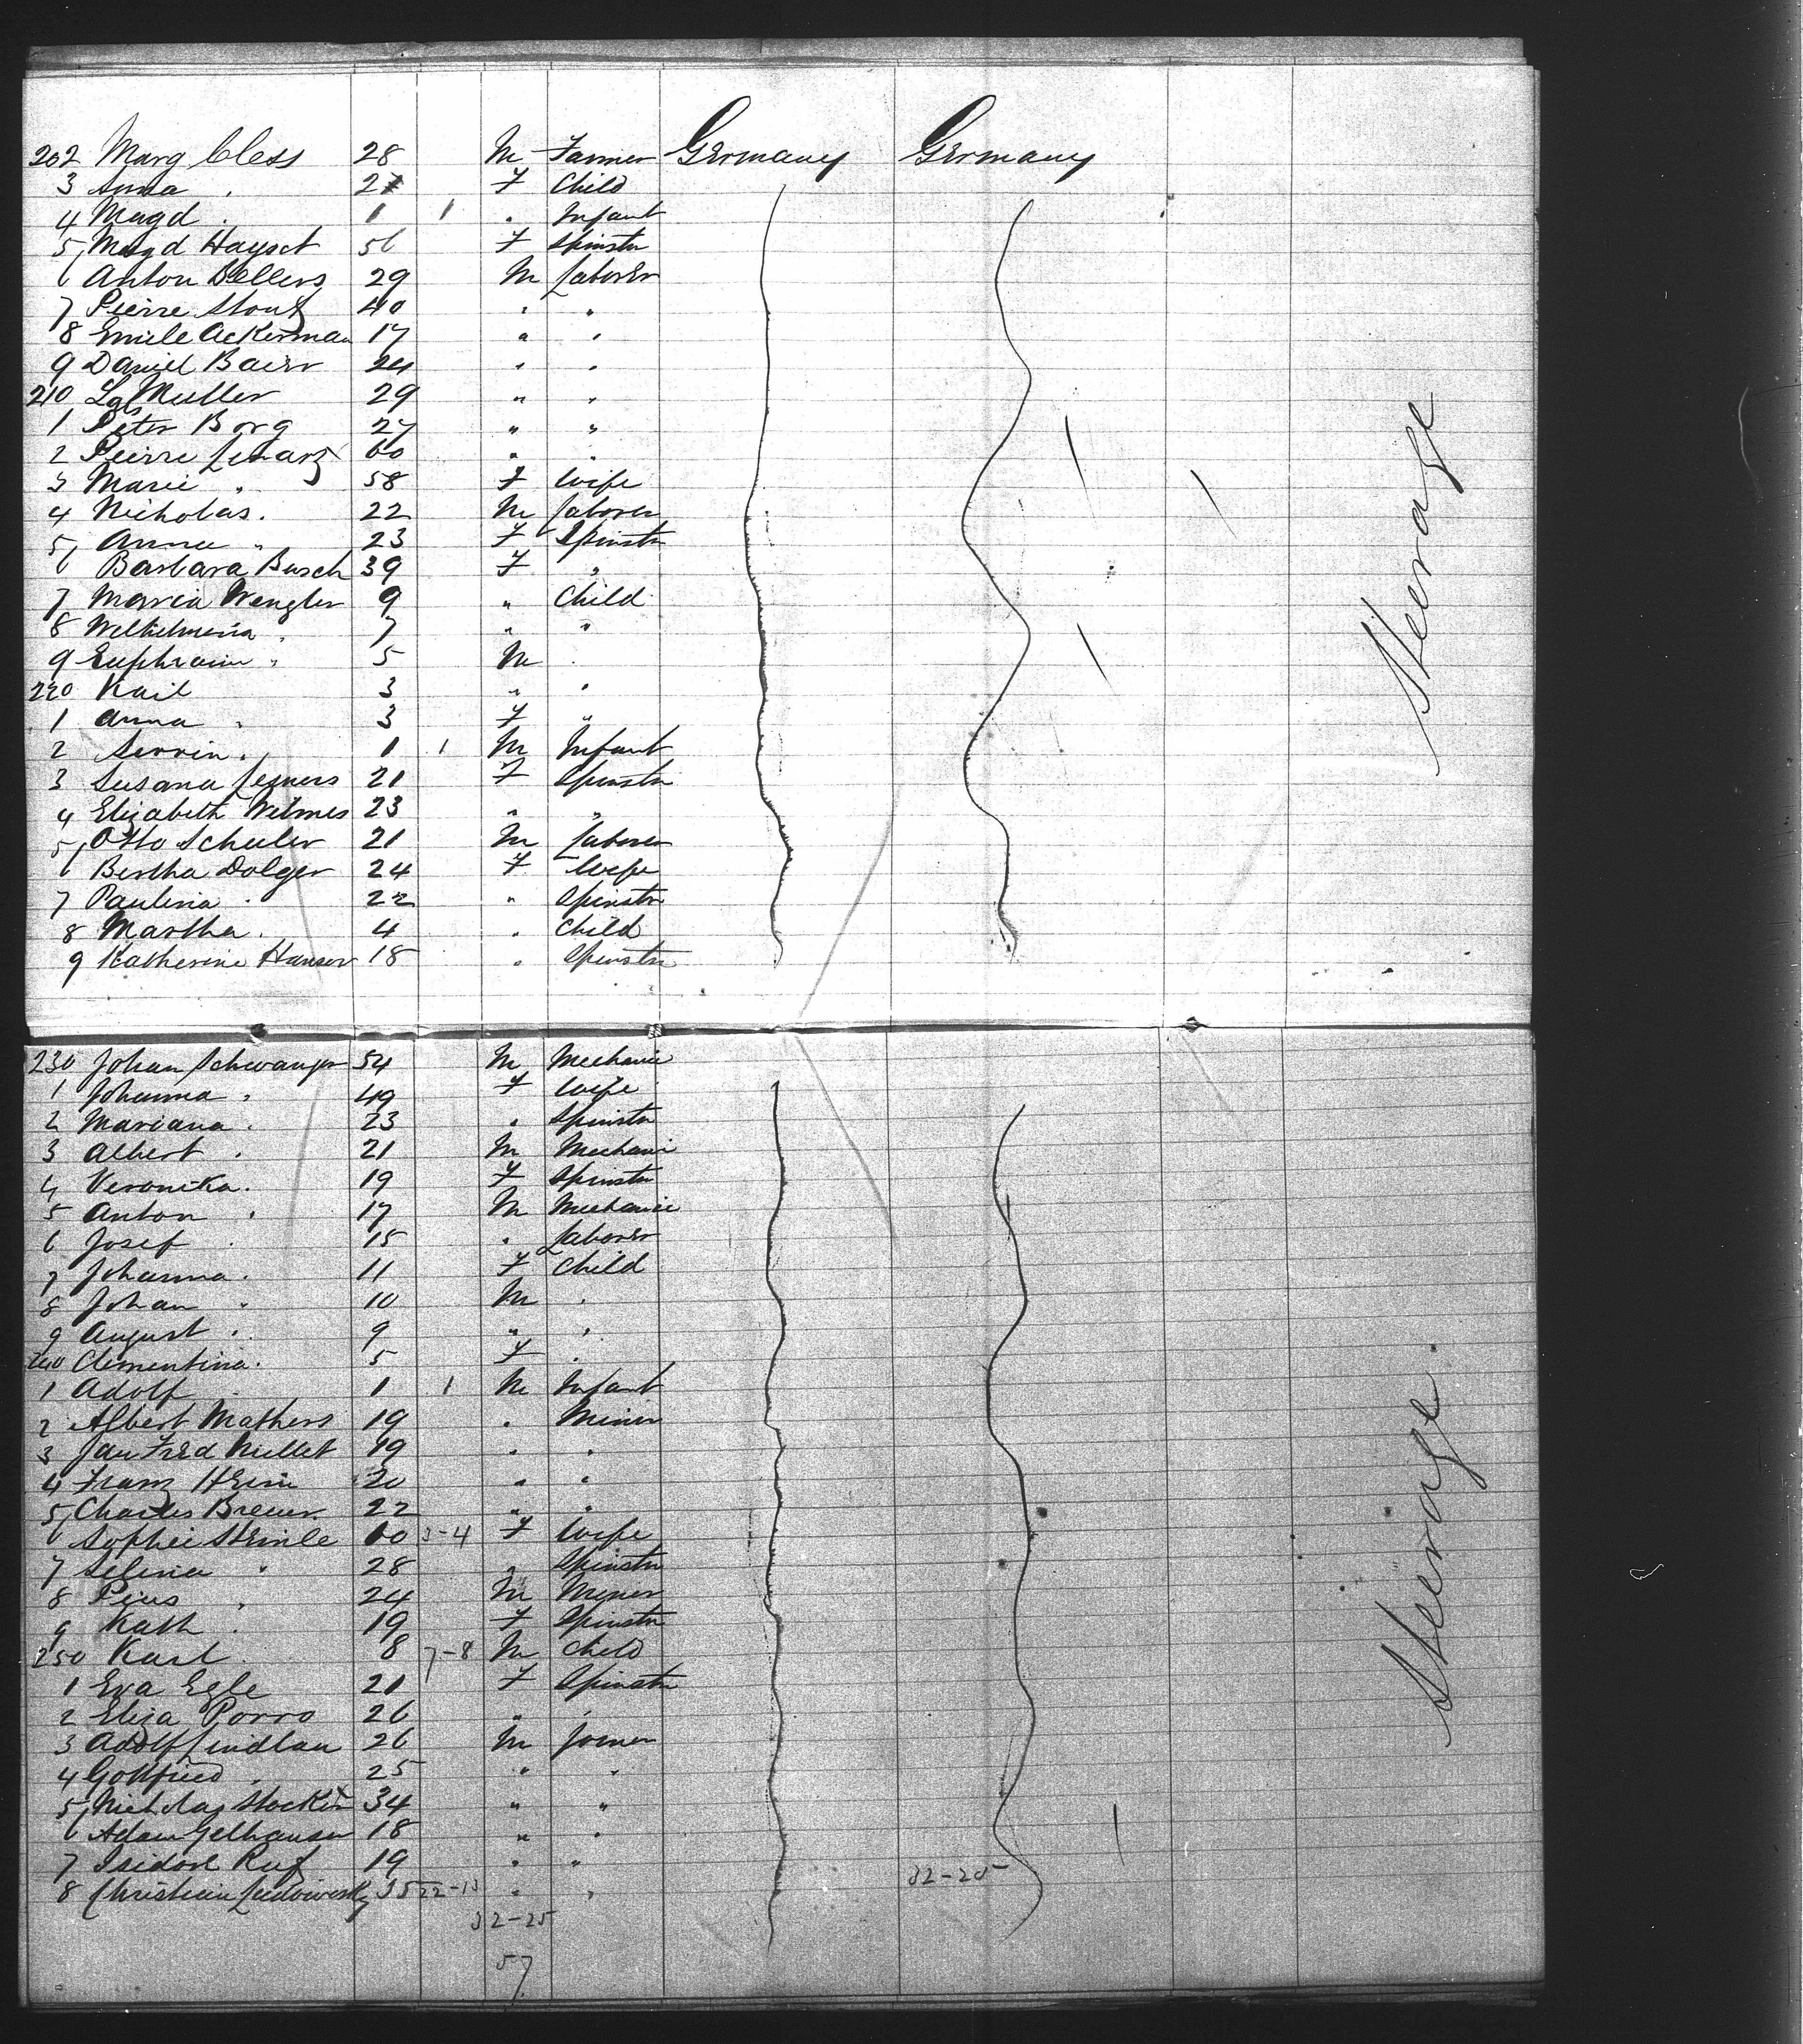 202 Marg Cless 28 M Farmer Germany Germany
3 Anna . 2 F Child
4 Magd . 1 1 . Infant
5 Magd Haysct 56 F Spinstr
6 Anton Dellers 29 M Laborer
7 Pierre Stoutz 40 " "
8 Emile Ackerman 17 " "
9 Daniel Baier 24 " "
210 Ls Muller 29 " "
1 Peter Borg 27 " "
2 Pierre Lenarz 60 " "
3 Marie " 58 F Wife
4 Nicholas . 22 M Laborer
5 Anna " 23 F Spinstr
6 Barbara Busch 39 F "
7 Maria Wengler 9 " Child
8 Wilhelmina . 7 " "
9 Euphraim " 5 M .
220 Karl 3 " "
1 Anna " 3 F "
2 . 1 1 M Infant
3 Susana 21 F Spinstr
4 Elizabeth Wilmes 23 " "
5 Otto Schuler 21 M Laborer
6 Bertha Dolger 24 F Wife
7 Paulina . 22 " Spinstr
8 Martha . 4 . Child
9 Katherine Hanser 18 . Spinstr
Steerage
230 Johan Schwanger 54 M Mechanic
1 Johanna . 49 F Wife
2 Mariana . 23 . Spinstr
3 Albert . 21 M Mechani
4 Veronika . 19 F Spinstr
5 Anton . 17 M Mechanic
6 Josef . 15 . Laborer
7 Johanna . 11 F Child
8 Johan " 10 M .
9 August . 9 " "
240 Clementina . 5 F .
1 Adolf . 1 1 M Infant
2 Albert Mathers 19 . Miner
3 Jan Fred Mullet 19 . "
4 Franz Heini 20 " "
5 Charles Breuer 22 " "
6 Sophei Steinle 60 3-4 F Wife
7 Selina " 28 " Spinstr
8 Pius " 24 M Miner
9 Kath . 19 F Spinstr
250 Karl . 8 7-8 M Child
1 Eva Egle 21 F Spinstr
2 Eliza Porro 26 " "
3 Adolf Lindlau 26 M Joiner
4 Gottfried " 25 " "
5 Nicholas 34 " "
6 Adam Gelhauser 18 " "
7 Isidore Ruf 19 . "
8 Christian 35 22-13 . " 32-25
32-25
57
Steerage